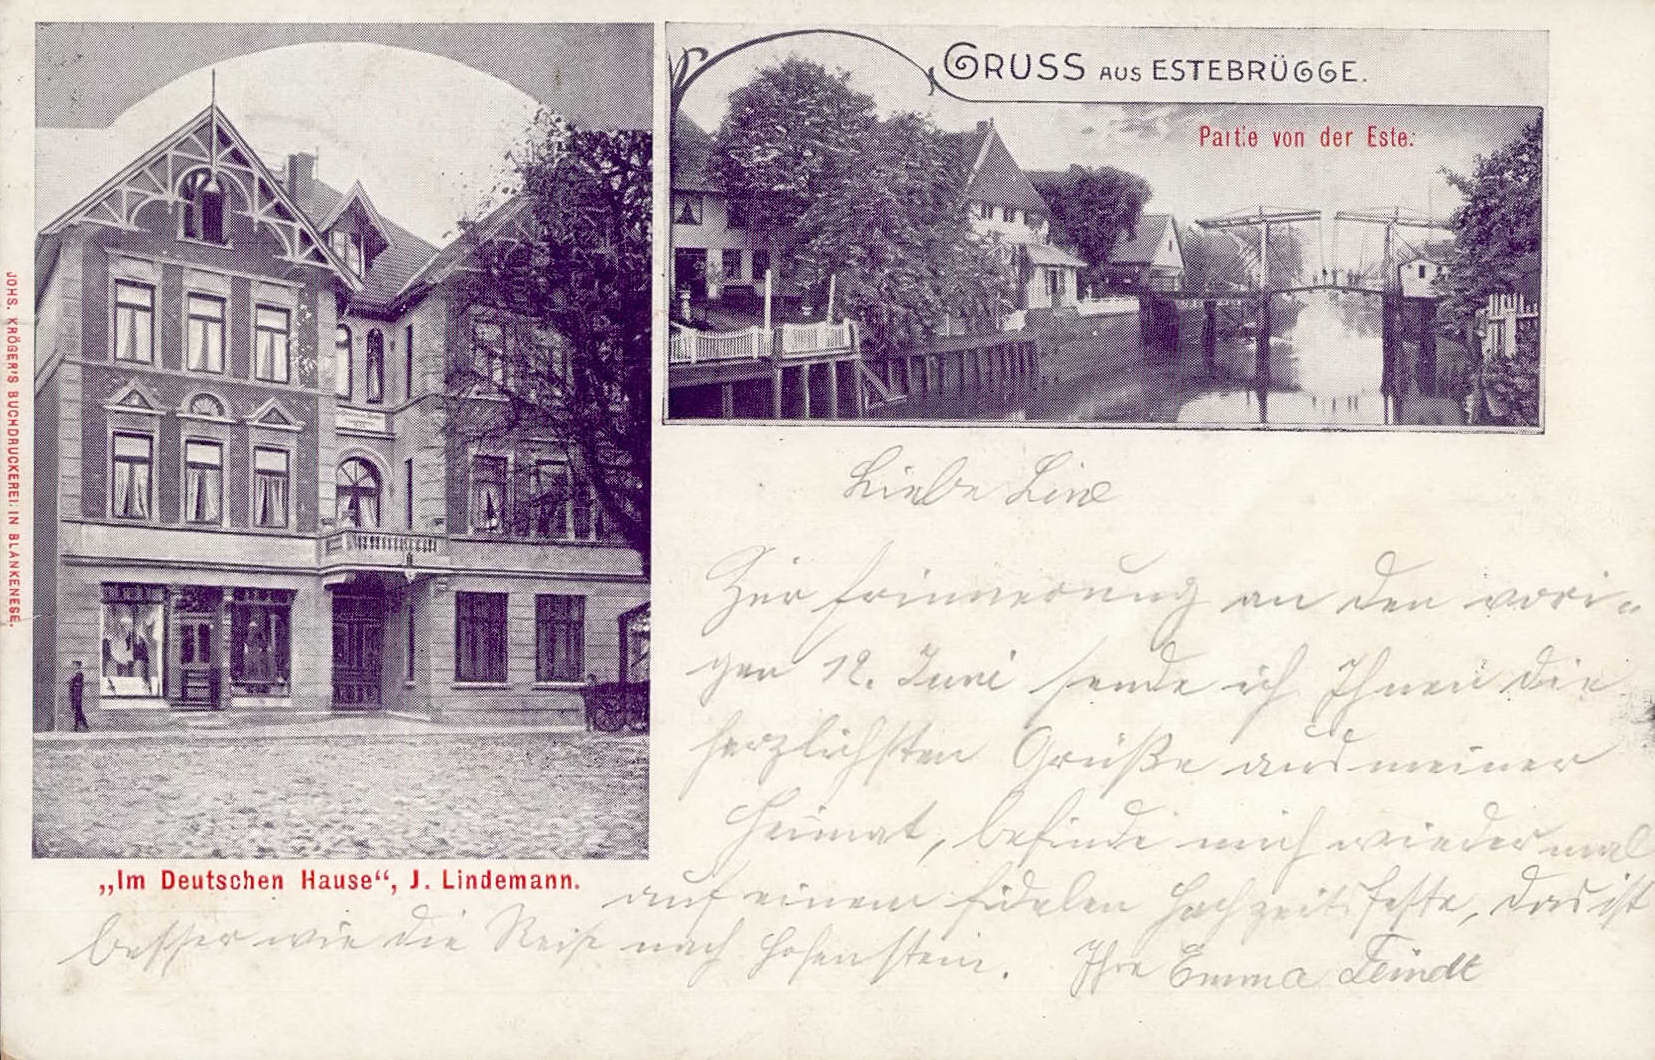 GRUSS AUS ESTEBRÜGGE.
Partie von der Este.
JOHS. KRÖGER'S BUCHDRUCKEREI IN BLANKENESE.
„Im Deutschen Hause“, J. Lindemann.
Liebe Line
Zur Erinnerung an den vori-
gen 12. Juni sende ich Ihnen die
herzlichsten Grüße aus meiner
Heimat, befinde mich wieder mal
auf einem fidelen Hochzeitsfeste, das ist
besser wie die Reise nach Hohenstein. Ihre Emma Feindt